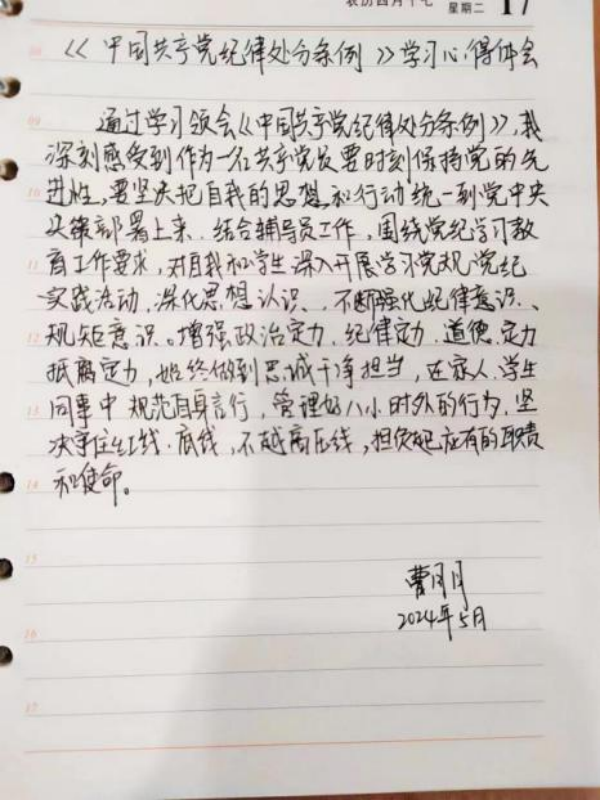 农历四月十七 星期二 17
《中国共产党纪律处分条例》学习心得体会
09
通过学习领会《中国共产党纪律处分条例》，我
深刻感受到作为一名共产党员要时刻保持党的先
10 进性，要坚决把自我的思想和行动统一到党中央
决策部署上来。结合辅导员工作，围绕党纪学习教
11 育工作要求，对自我和学生深入开展学习党规党纪
实践活动，深化思想认识、不断强化纪律意识、
12 规矩意识。增强政治定力、纪律定力、道德定力
抵腐定力，始终做到忠诚干净担当，在家人、学生
13 同事中规范自身言行，管理好八小时外的行为，坚
决守住红线、底线，不越高压线，担负起应有的职责
14 和使命。
15
曹月月
16 2024年5月
17